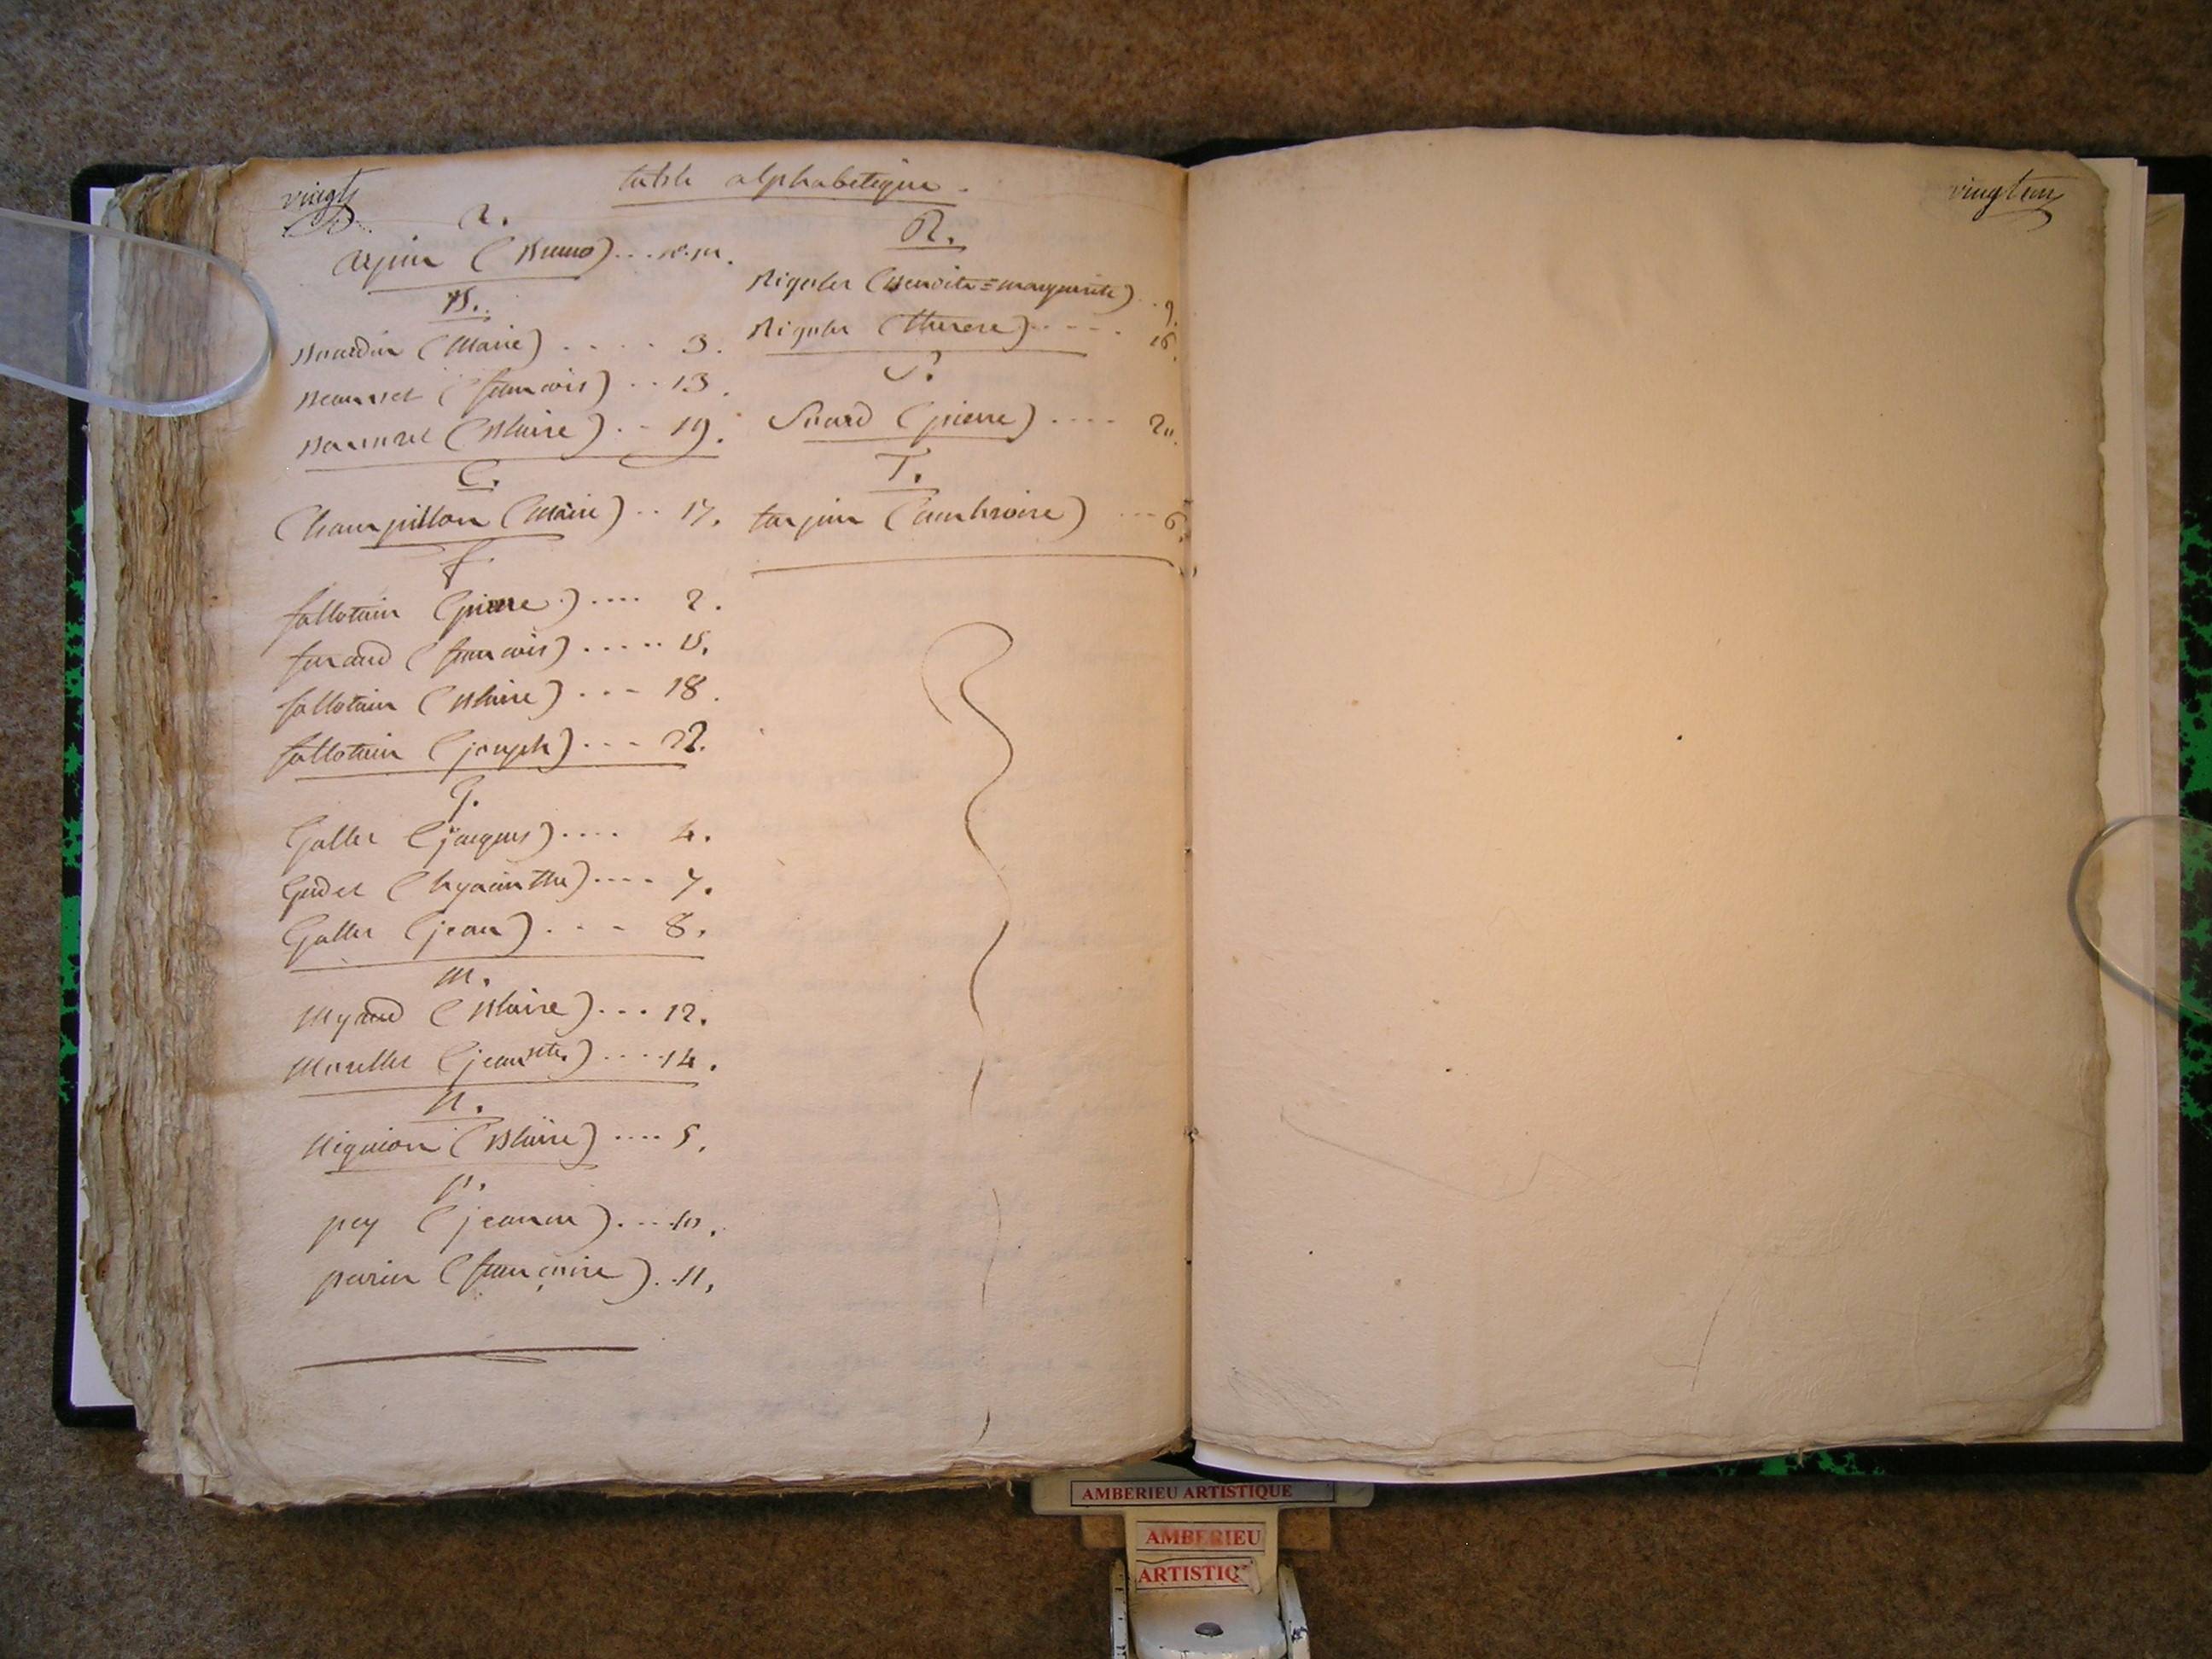 vingt
table alphabetique.
a.
arpin (Bruno)... n°.
B.
Bourdin (Marie) .... 3.
Beaunet (francois) .. 13.
(Blaise) .. 19.
C.
Champillon (Marie) .. 17.
f.
fallotain (pierre) .... 2.
furand (francois) ..... 15.
fallotain (Blaise) ... 18.
fallotain (joseph) ... 22.
g.
Gallet (jacques) .... 4.
Godet (hyacinthe) .... 7.
Gallet (jean) ... 8.
m.
Myard (Blaise) ... 12.
Morellet (jeannette) .... 14.
n.
Niguion (Blaise) .... 5.
p.
pey (jeanne) .... 10.
perrin (françoise) .. 11.
R.
Rigolet (Benoite=marguerite) .. 9.
Rigolet (therese) ..... 16.
S.
Suard (pierre) .... 20.
T.
tarpin (ambroise) ... 6.
vingt un
AMBERIEU ARTISTIQUE
AMBERIEU
ARTISTIQ